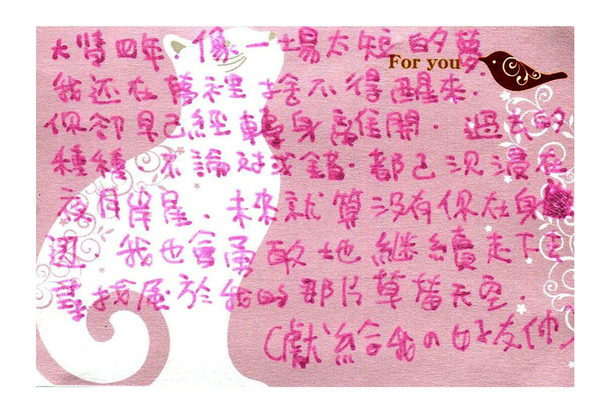 大學四年.像一場太短的夢
For you
我还在夢裡捨不得醒來.
你卻早已經轉身離開. 過去的
種種.不論对或錯.都已沉浸在
夜月岸尾.未來就算沒有你在身
邊.我也會勇敢地繼續走下去
尋找屬於我的那片草皆天空.
(獻給我の好友們)